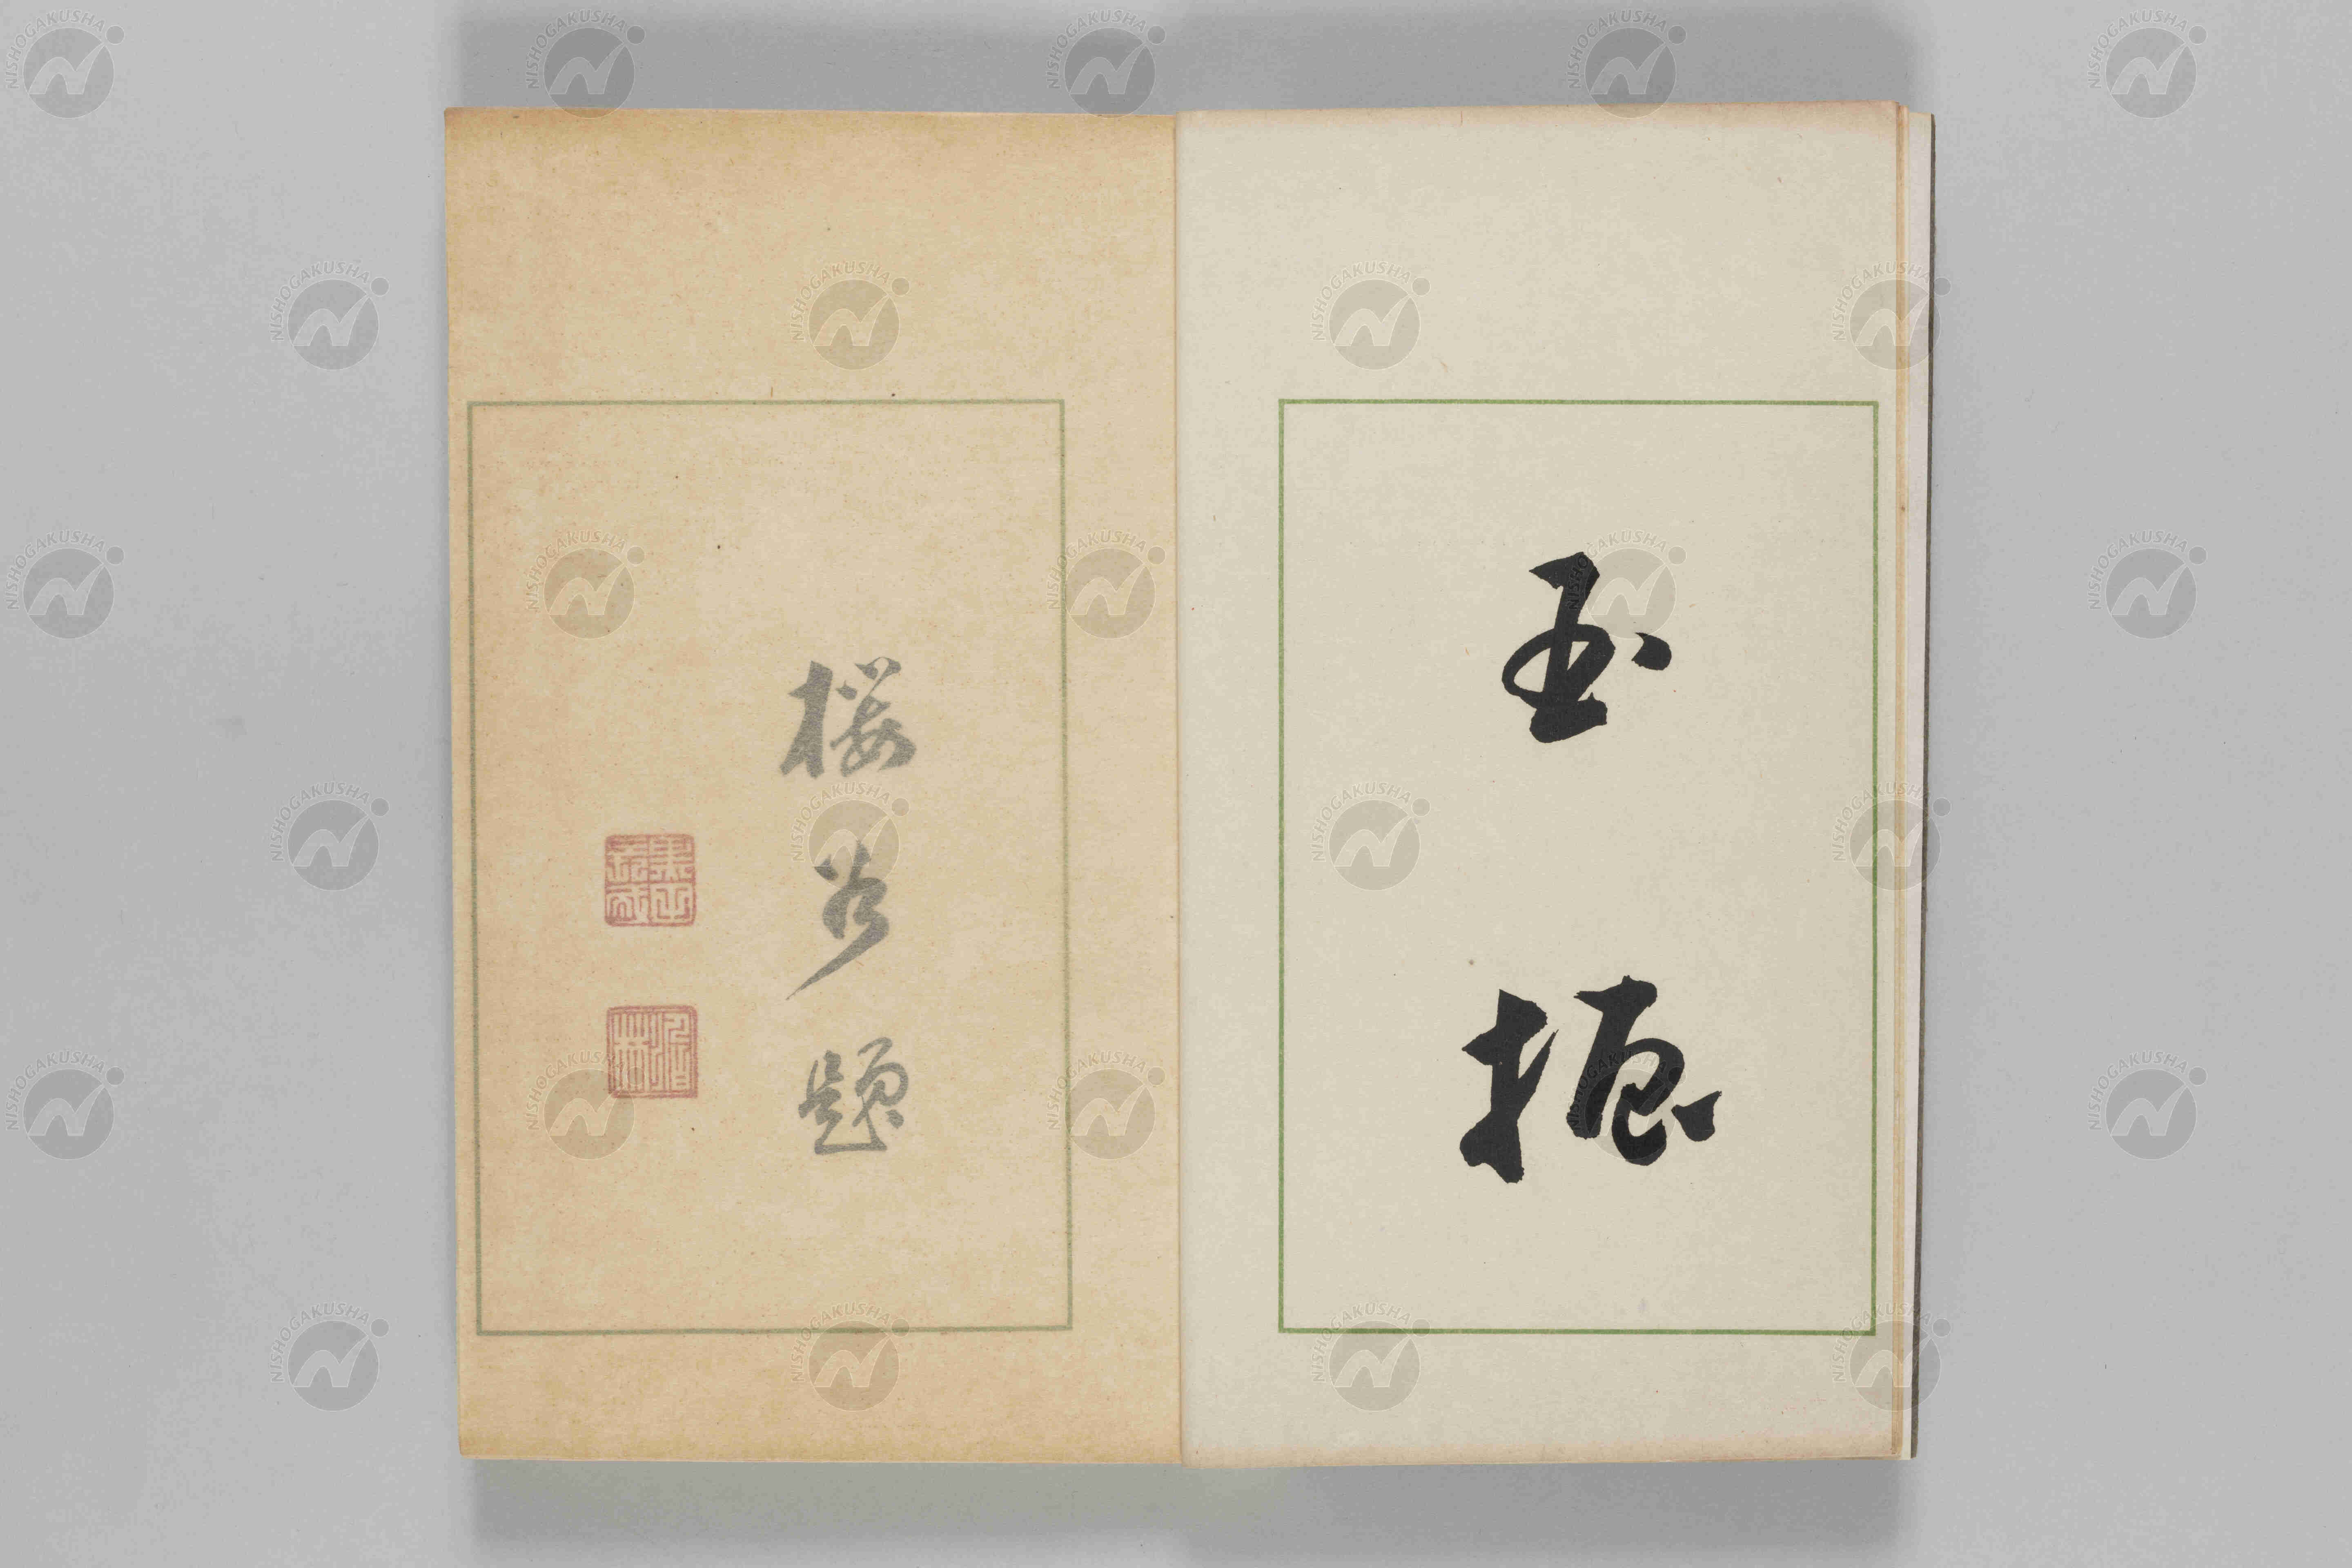 玉振
櫻谷題
NISHOGAKUSHA